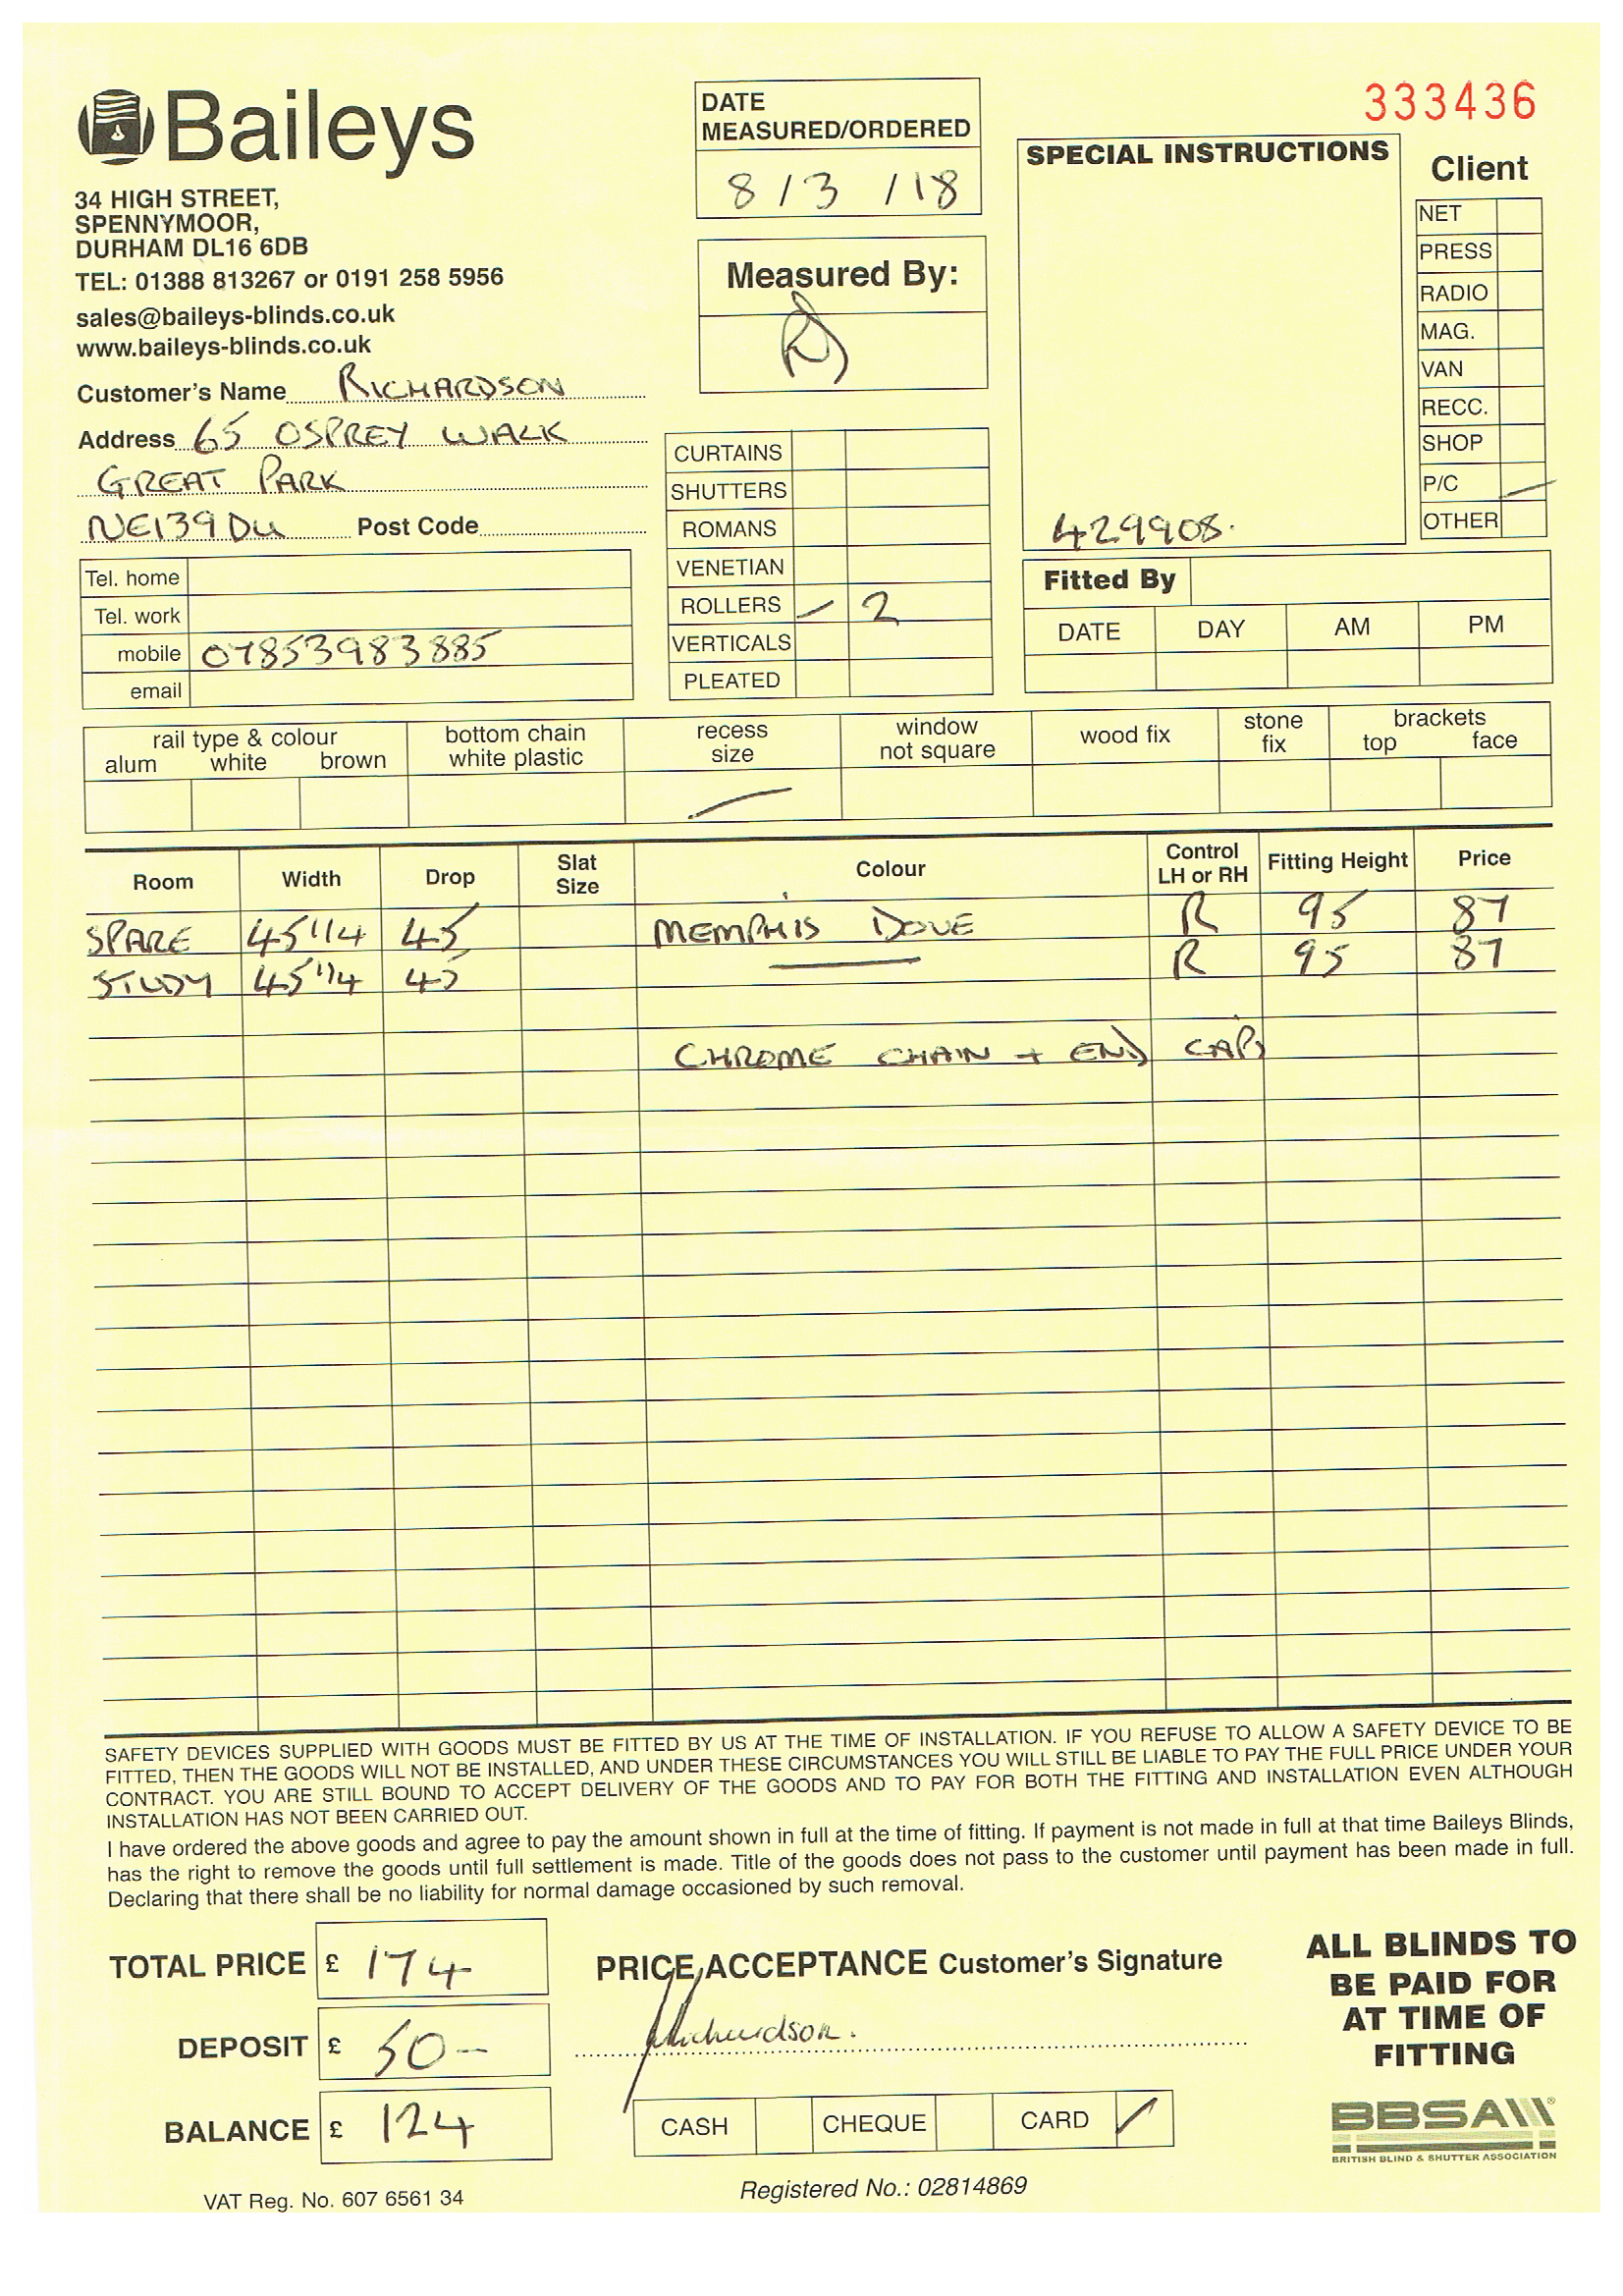 Baileys
34 HIGH STREET,
SPENNYMOOR,
DURHAM DL16 6DB
TEL: 01388 813267 or 0191 258 5956
sales@baileys-blinds.co.uk
www.baileys-blinds.co.uk
Customer's Name RICHARDSON
Address 65 OSPREY WALK
GREAT PARK
NE139DU Post Code
Tel. home
Tel. work
mobile 07853983885
email
DATE
MEASURED/ORDERED
8 / 3 / 18
Measured By:
CURTAINS
SHUTTERS
ROMANS
VENETIAN
ROLLERS 2
VERTICALS
PLEATED
333436
SPECIAL INSTRUCTIONS
429908.
Client
NET
PRESS
RADIO
MAG.
VAN
RECC.
SHOP
P/C
OTHER
Fitted By
DATE DAY AM PM
rail type & colour
alum white brown
bottom chain
white plastic
recess
size
window
not square
wood fix
stone
fix
brackets
top face
Room Width Drop Slat Size Colour Control LH or RH Fitting Height Price
SPARE 45 1/4 45 MEMPHIS DOVE R 95 87
STUDY 45 1/4 45 R 95 87
CHROME CHAIN + END CAPS
SAFETY DEVICES SUPPLIED WITH GOODS MUST BE FITTED BY US AT THE TIME OF INSTALLATION. IF YOU REFUSE TO ALLOW A SAFETY DEVICE TO BE
FITTED, THEN THE GOODS WILL NOT BE INSTALLED, AND UNDER THESE CIRCUMSTANCES YOU WILL STILL BE LIABLE TO PAY THE FULL PRICE UNDER YOUR
CONTRACT. YOU ARE STILL BOUND TO ACCEPT DELIVERY OF THE GOODS AND TO PAY FOR BOTH THE FITTING AND INSTALLATION EVEN ALTHOUGH
INSTALLATION HAS NOT BEEN CARRIED OUT.
I have ordered the above goods and agree to pay the amount shown in full at the time of fitting. If payment is not made in full at that time Baileys Blinds,
has the right to remove the goods until full settlement is made. Title of the goods does not pass to the customer until payment has been made in full.
Declaring that there shall be no liability for normal damage occasioned by such removal.
TOTAL PRICE £ 174
DEPOSIT £ 50-
BALANCE £ 124
VAT Reg. No. 607 6561 34
PRICE ACCEPTANCE Customer's Signature
Richardson.
CASH CHEQUE CARD
Registered No.: 02814869
ALL BLINDS TO
BE PAID FOR
AT TIME OF
FITTING
BBSA
BRITISH BLIND & SHUTTER ASSOCIATION